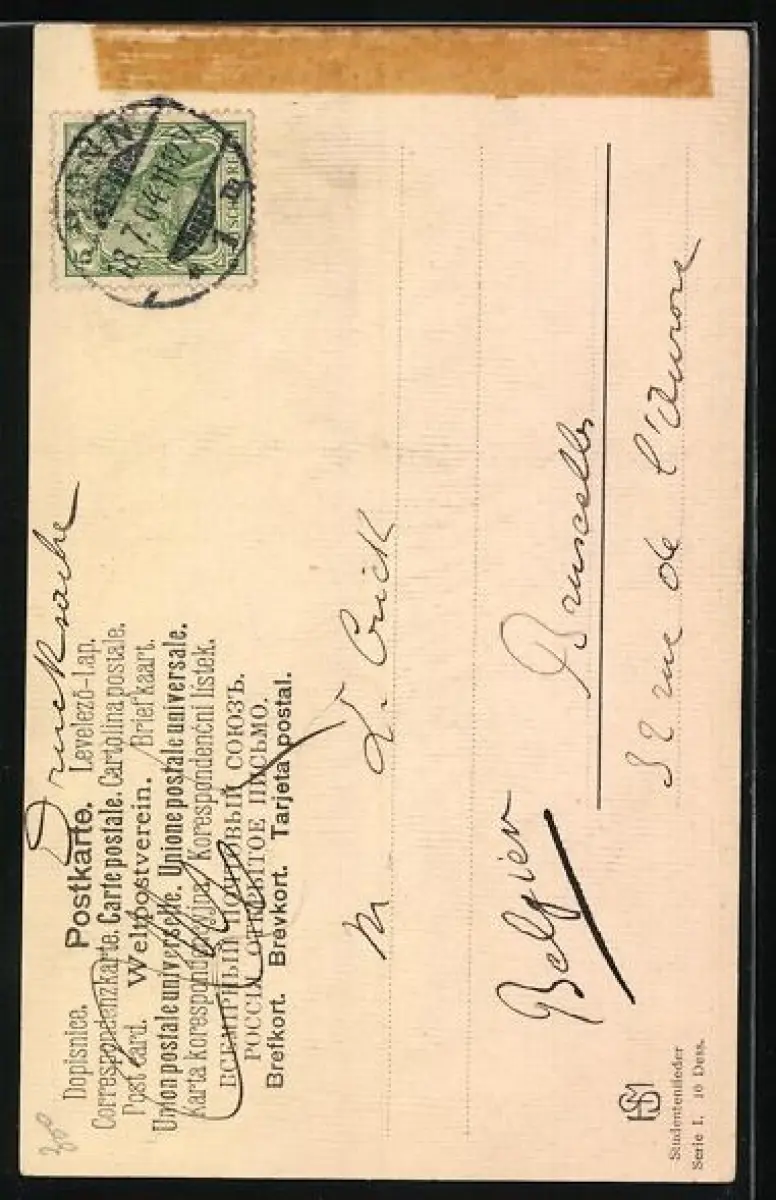 Drucksache
Dopisnice. Postkarte. Levelező-Lap.
Correspondenzkarte. Carte postale. Cartolina postale.
Post card. Weltpostverein. Briefkaart.
Union postale universelle. Unione postale universale.
Karta korespondencyjna. Korespondenční lístek.
ВСЕМIРНЫЙ ПОЧТОВЫЙ СОЮЗЪ.
РОССIЯ. ОТКРЫТОЕ ПИСЬМО.
Brefkort. Brevkort. Tarjeta postal.
5
DEUTSCHES REICH
BONN
18.7.04.11-12V
* 1 e
M L. Crick
Bruxelles
Belgien
52 rue de l'Aurore
HSM
Studentenlieder
Serie I. 10 Dess.